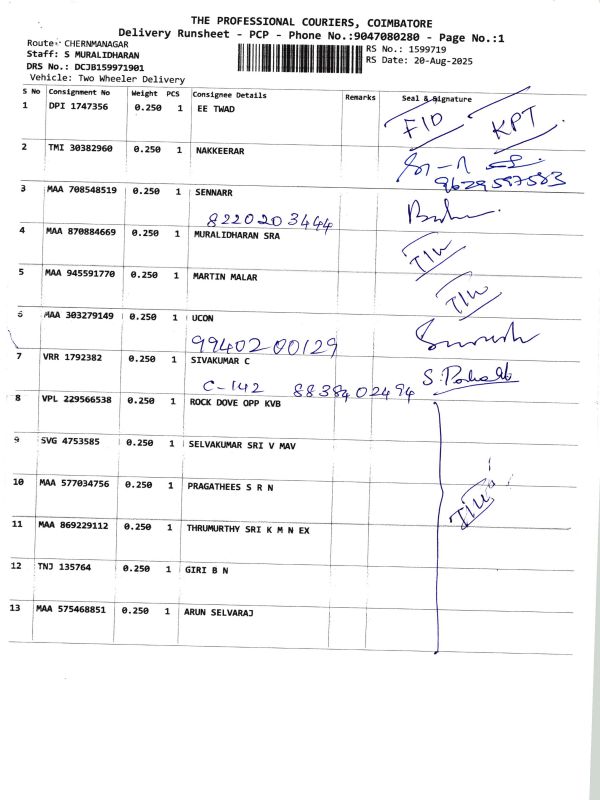 THE PROFESSIONAL COURIERS, COIMBATORE
Delivery Runsheet - PCP - Phone No.:9047080280 - Page No.:1
Route: CHERNMANAGAR
Staff: S MURALIDHARAN
DRS No.: DCJB159971901
Vehicle: Two Wheeler Delivery
RS No.: 1599719
RS Date: 20-Aug-2025
S No Consignment No Weight PCS Consignee Details Remarks Seal & Signature
1 DPI 1747356 0.250 1 EE TWAD FID KPT
2 TMI 30382960 0.250 1 NAKKEERAR
9629597583
3 MAA 708548519 0.250 1 SENNARR
8220203444
4 MAA 870884669 0.250 1 MURALIDHARAN SRA TIW
5 MAA 945591770 0.250 1 MARTIN MALAR TIW
6 MAA 303279149 0.250 1 UCON
9940200129
7 VRR 1792382 0.250 1 SIVAKUMAR C
C-142 8838402494
8 VPL 229566538 0.250 1 ROCK DOVE OPP KVB
9 SVG 4753585 0.250 1 SELVAKUMAR SRI V MAV
10 MAA 577034756 0.250 1 PRAGATHEES S R N TIW
11 MAA 869229112 0.250 1 THRUMURTHY SRI K M N EX
12 TNJ 135764 0.250 1 GIRI B N
13 MAA 575468851 0.250 1 ARUN SELVARAJ